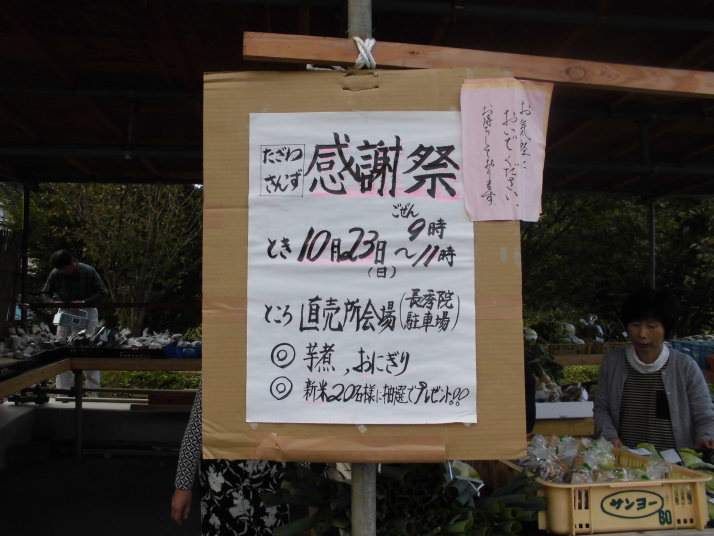 たざわ
さんず
感謝祭
とき 10月23日(日) ごぜん 9時～11時
ところ 直売所会場(長秀院駐車場)
◎ 芋煮、おにぎり
◎ 新米20名様に抽選でプレゼント!!
お気軽に
おいでください。
お待ちしております
サンヨー
60